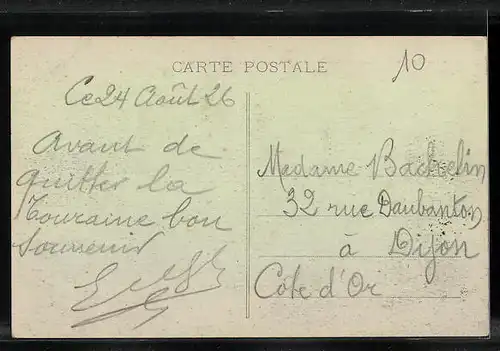 CARTE POSTALE
10
Ce 24 Août 26
Avant de
quitter la
Touraine bon
Souvenir
Madame Bachelin
32 rue Daubanton
à Dijon
Côte d'Or